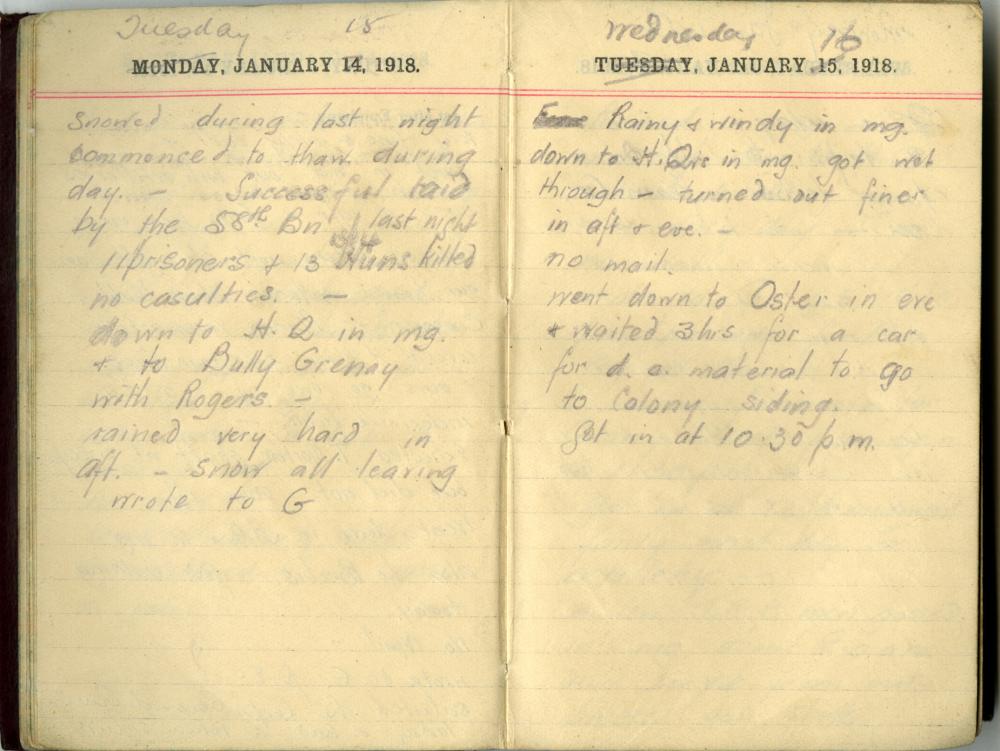 Tuesday 15
MONDAY, JANUARY 14, 1918.
Snowed during last night
commenced to thaw during
day. — Successful raid
by the 58th Bn last night
11 prisoners + 13 Huns killed
no casulties. —
down to H Q in mg.
+ to Bully Grenay
with Rogers —
rained very hard in
aft. — snow all leaving
wrote to G
Wednesday 16
TUESDAY, JANUARY 15, 1918.
Rainy + windy in mg.
down to H. Qrs in mg. got wet
through — turned out finer
in aft + eve. —
no mail.
went down to Oster in eve
+ waited 3 hrs for a car
for d. o. material to go
to Colony siding.
Got in at 10.30 p.m.